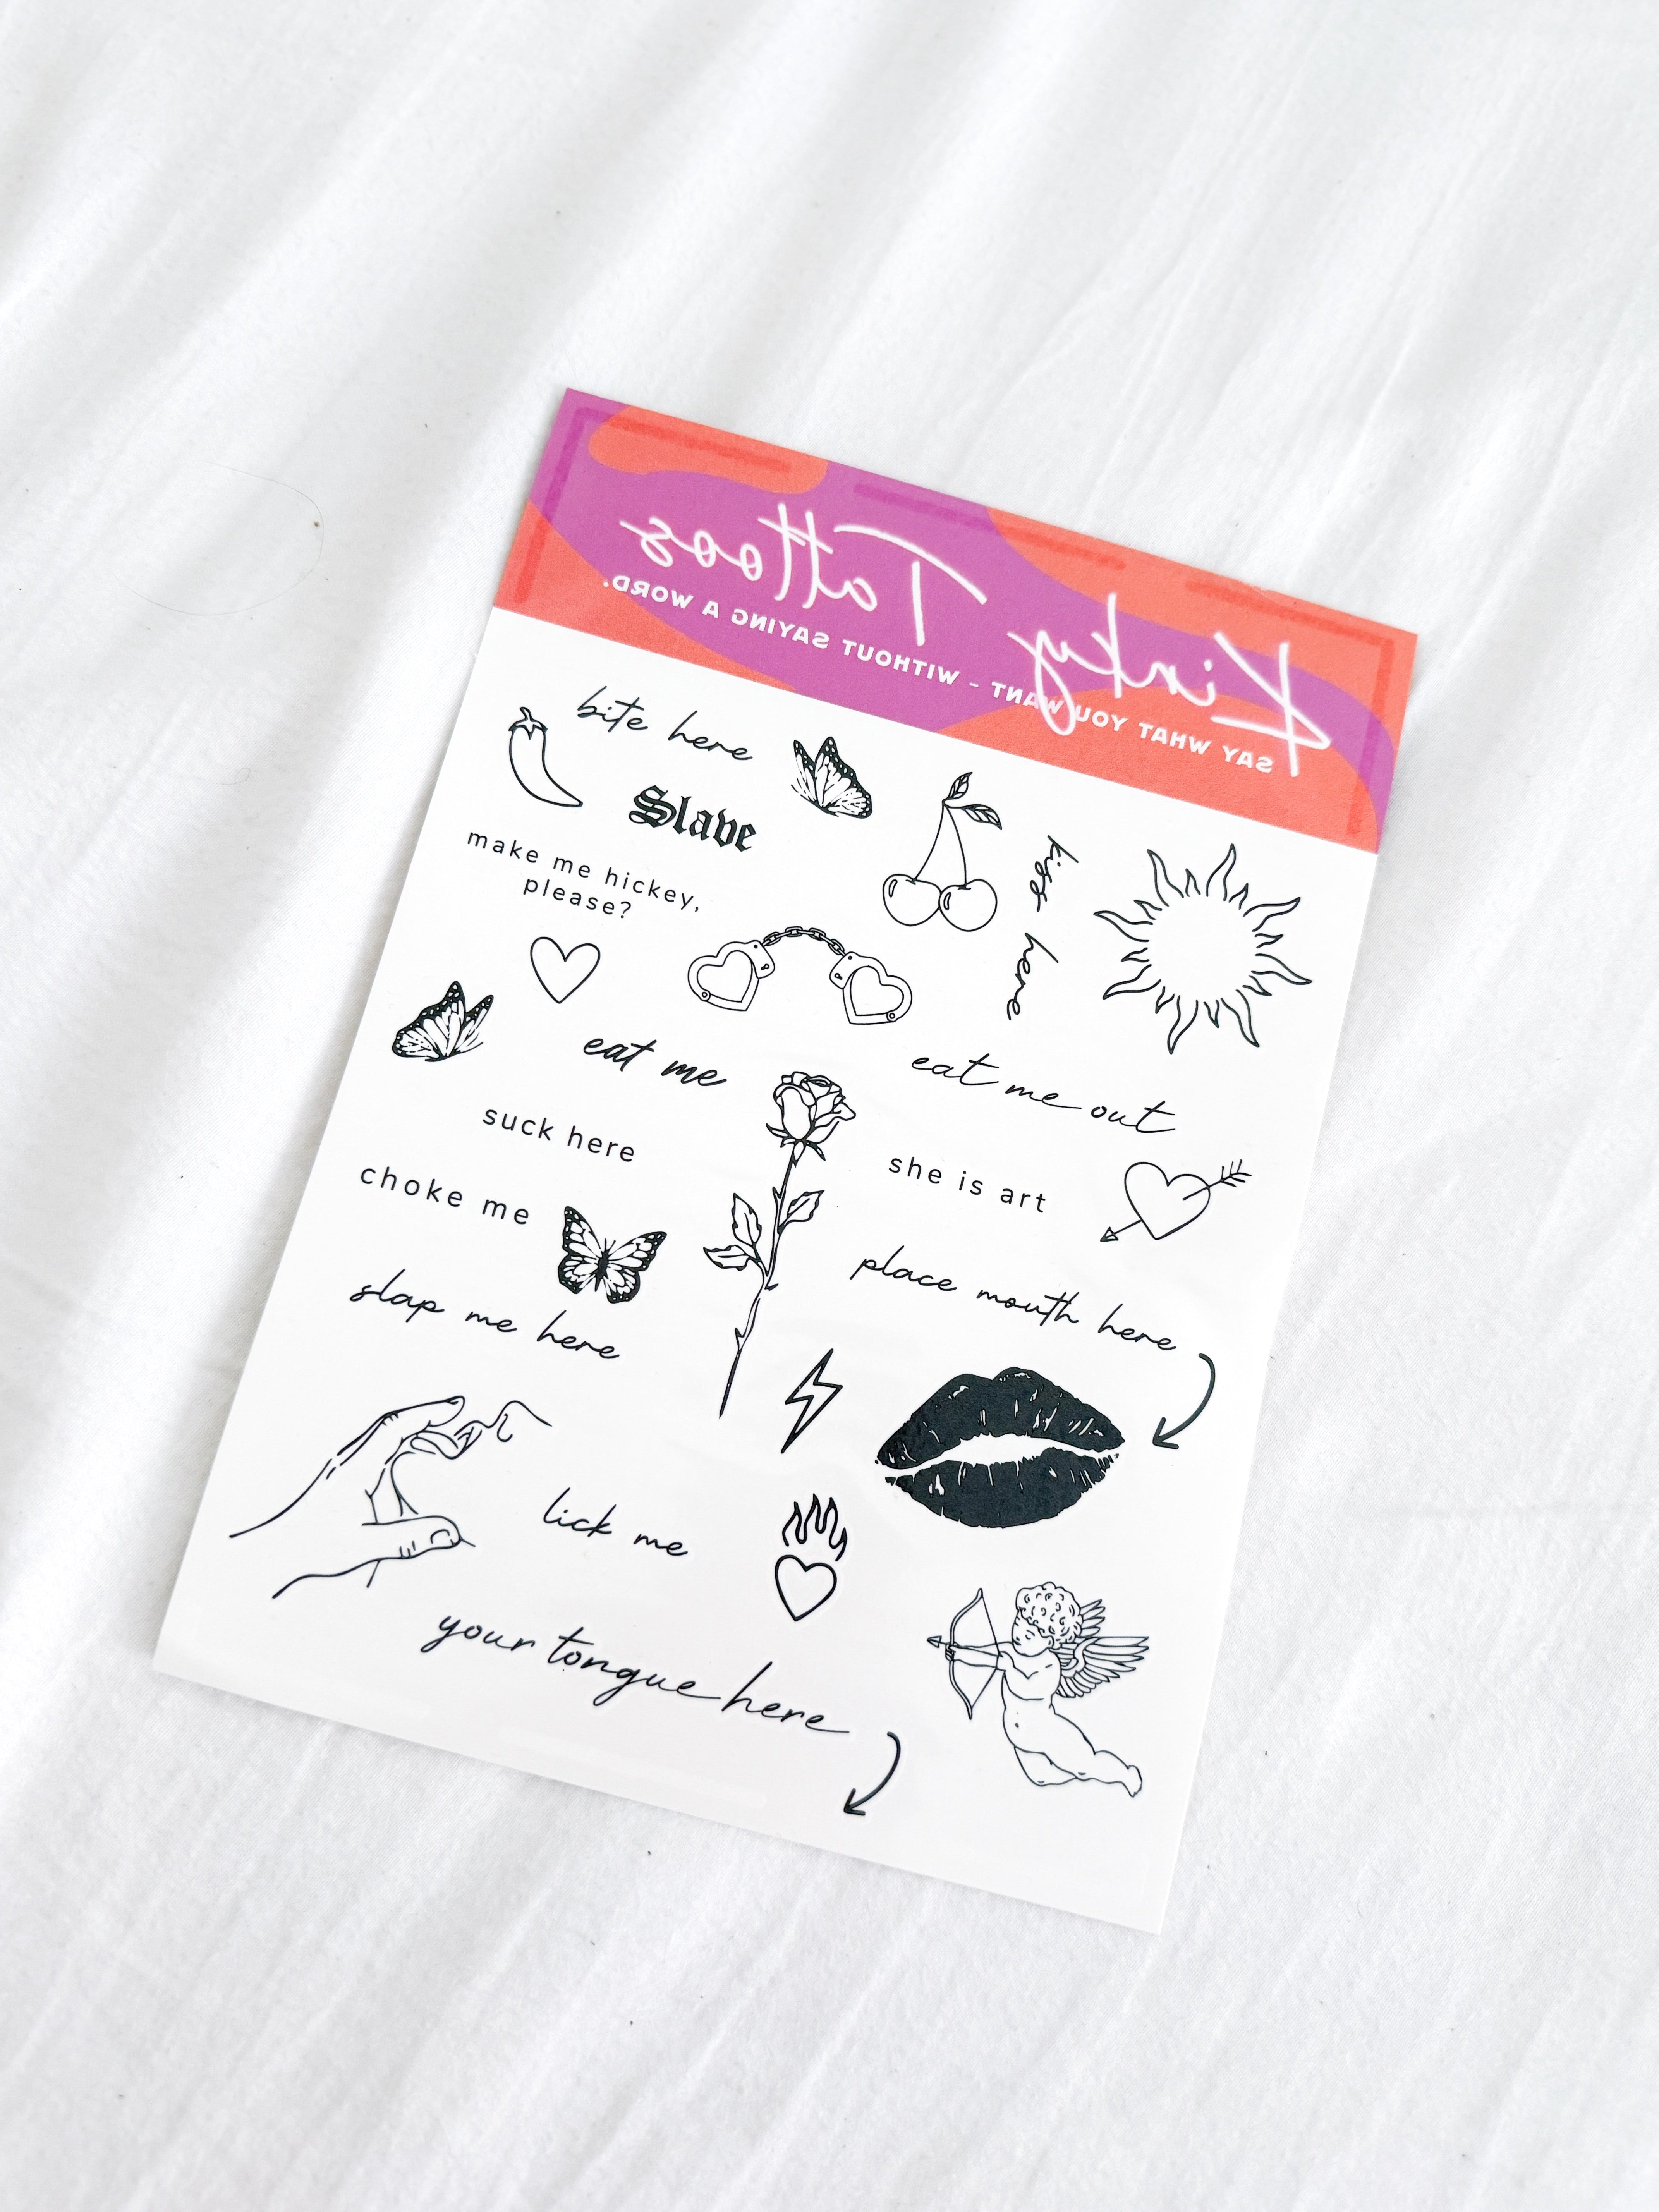 Kinky Tattoos
SAY WHAT YOU WANT - WITHOUT SAYING A WORD.
bite here
Slave
make me hickey,
please?
kiss here
eat me
eat me out
suck here
she is art
choke me
place mouth here
slap me here
lick me
your tongue here